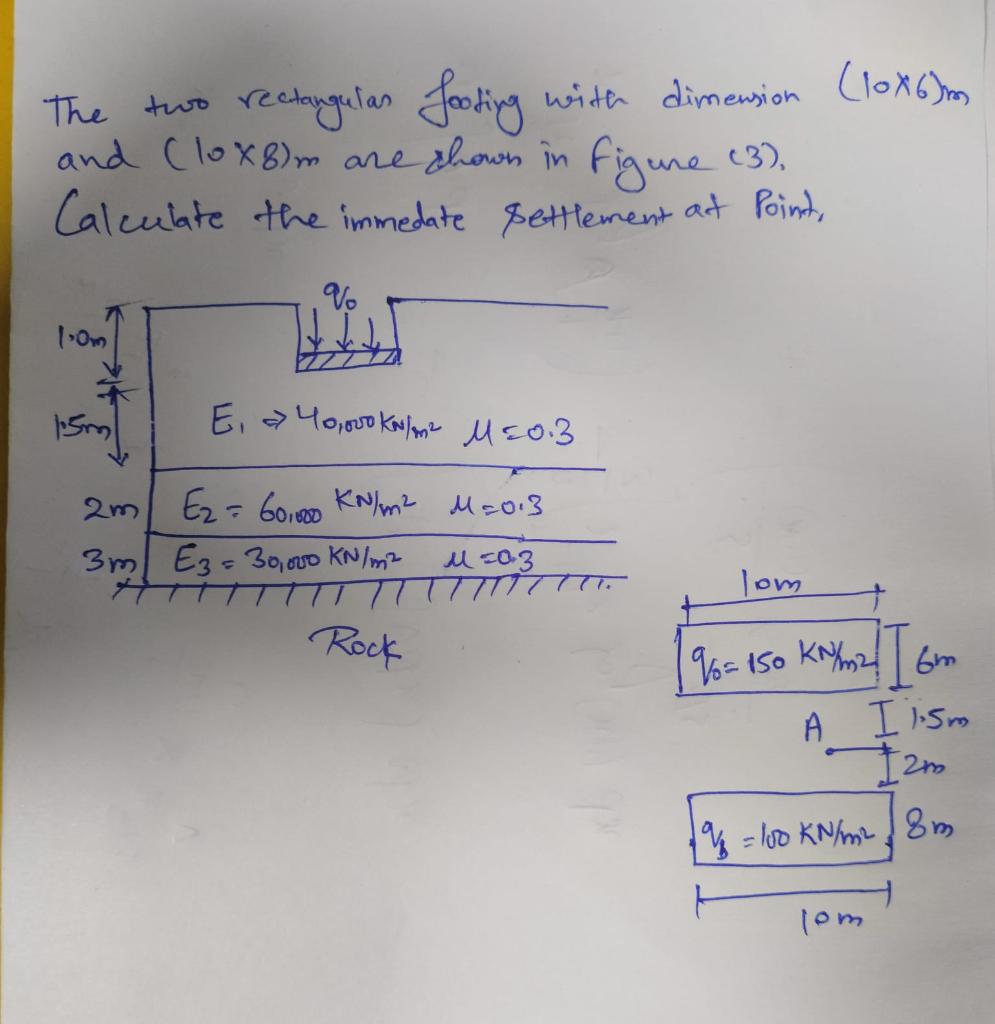 The two rectangular footing with dimension (10×6)m
and (10×8)m are shown in figure (3).
Calculate the immedate settlement at Point,
q₀
1.0m
1.5m
E₁ ⇒ 40,000 KN/m² μ=0.3
2m
E₂ = 60,000 KN/m² μ=0.3
3m
E₃ = 30,000 KN/m² μ=0.3
Rock
10m
q₀= 150 KN/m²
6m
A
1.5m
2m
= 100 KN/m²
8m
10m